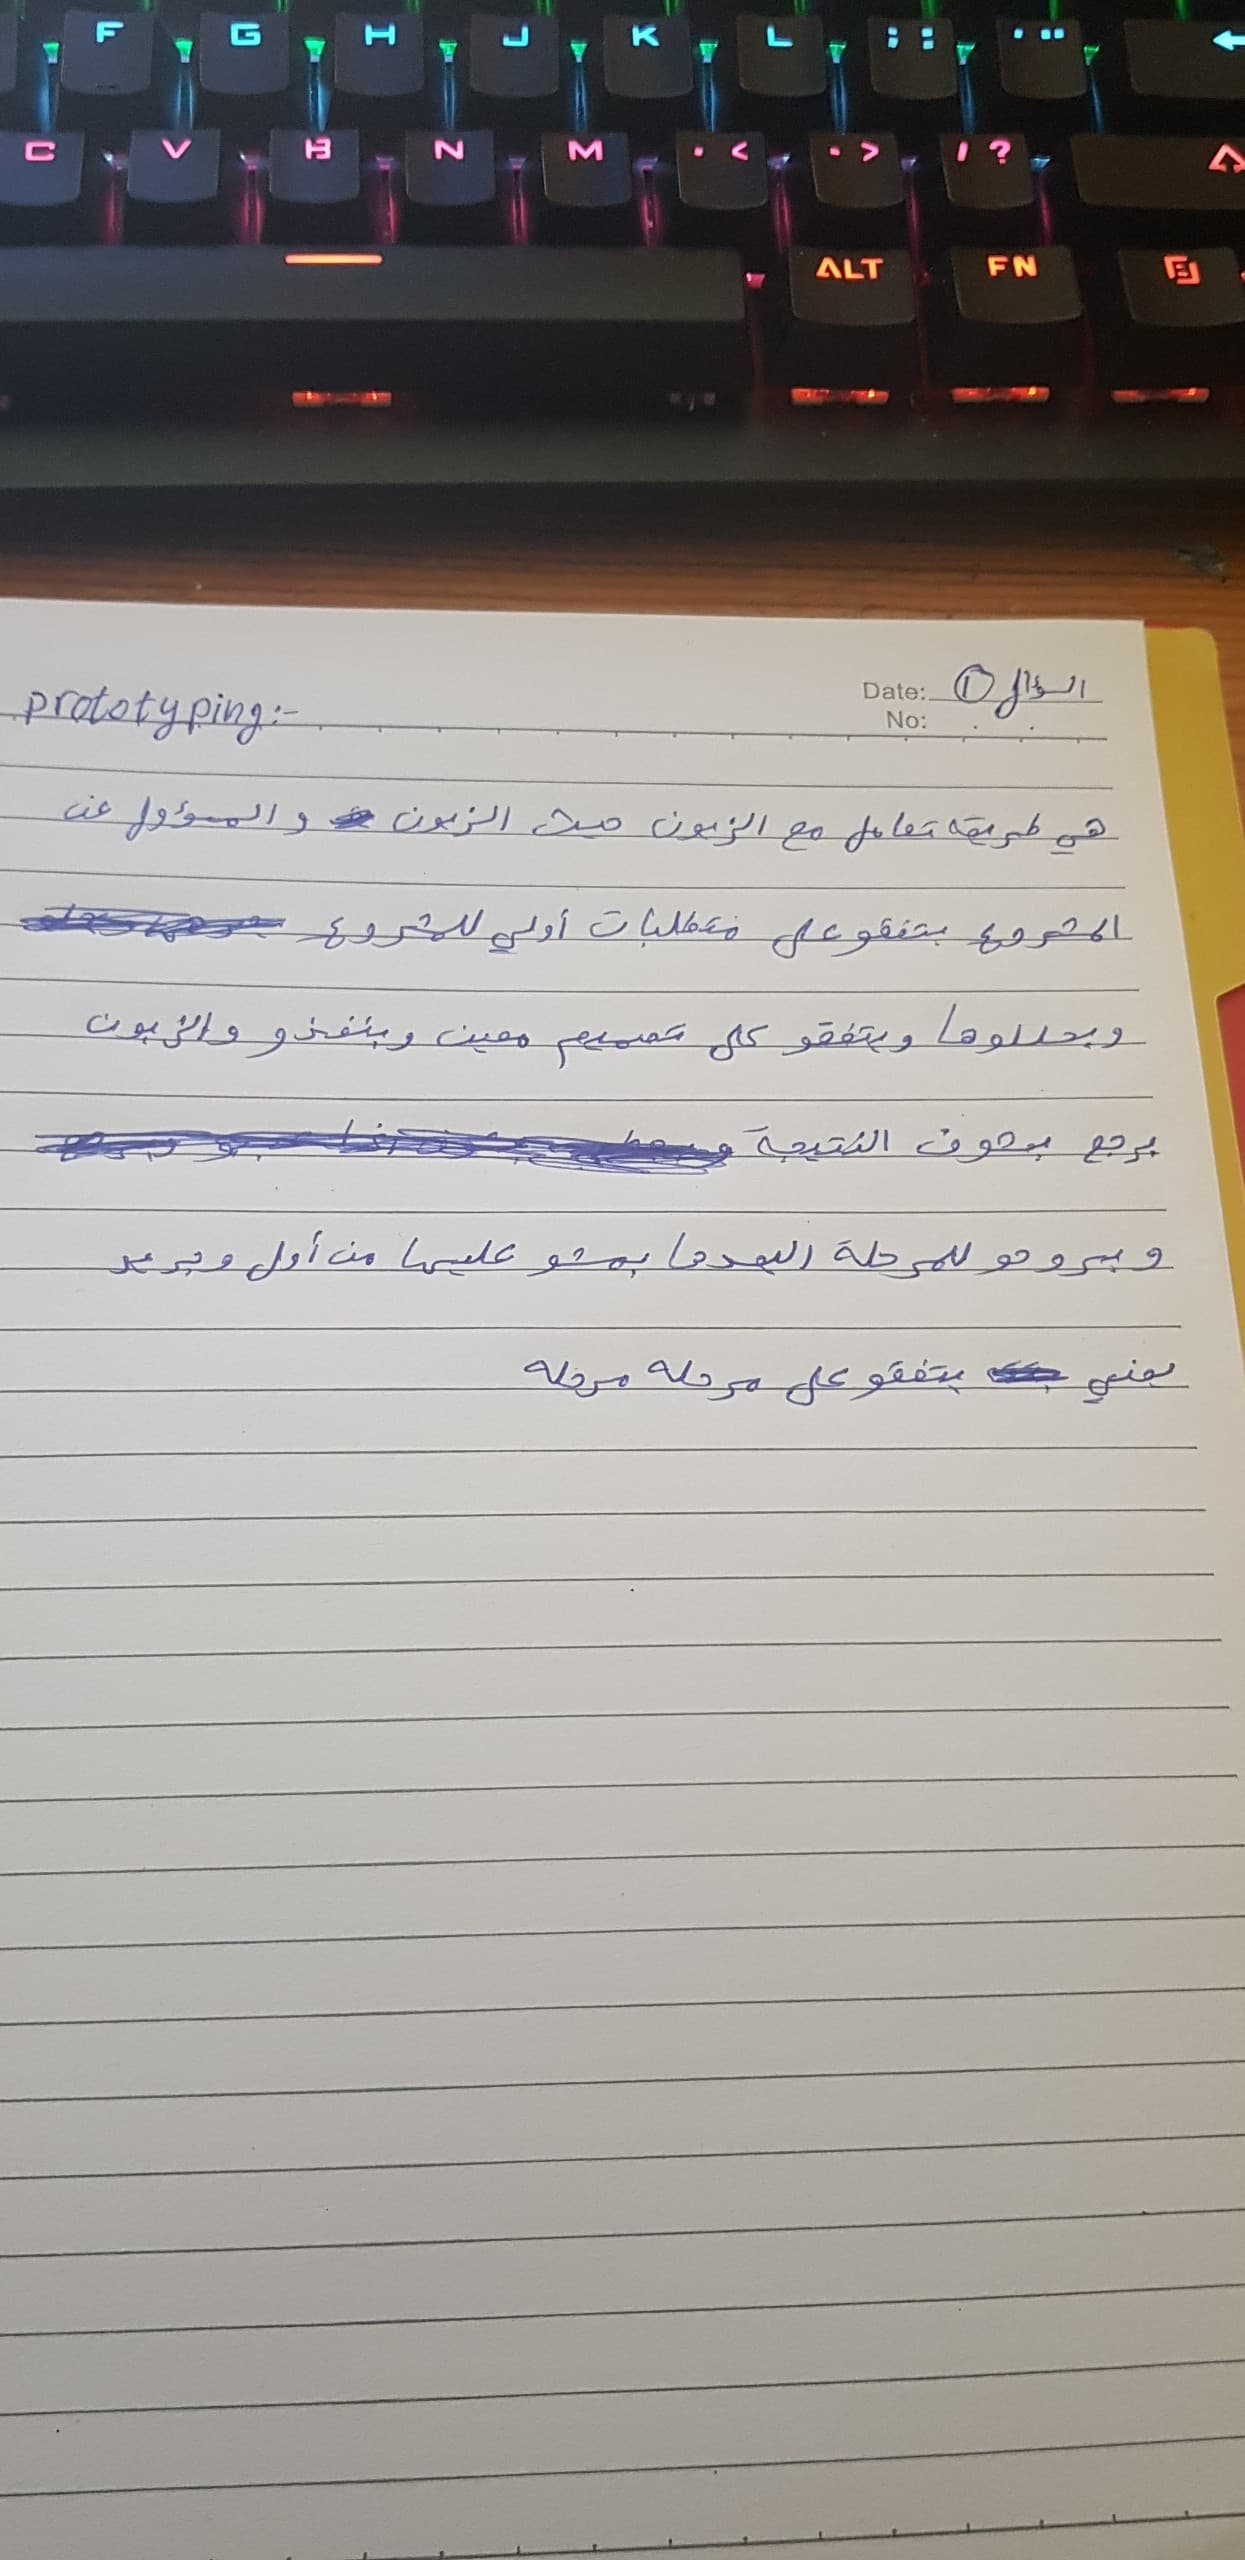 F G H J K L : ; ' "
C V B N M , < . > / ?
ALT FN
Date: السؤال ①
No:
prototyping:-
هي طريقة تعامل مع الزبون حيث الزبون والمسؤول عن
المشروع بتفقو على متطلبات أولي للمشروع
وبحللوها وبتفقو على تصميم معين وبنفذو والزبون
برجع بشوف النتيجة
وبروحو للمرحلة البعدها بمشو عليها من أول وجديد
يعني بتفقو على مرحلة مرحلة